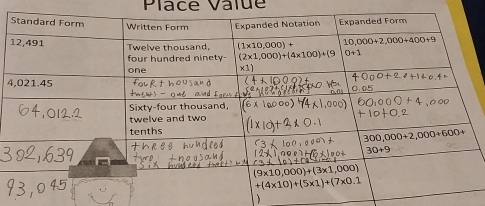 Place Value
Standard Form
Written Form
Expanded Notation
Expanded Form
12,491
Twelve thousand,
four hundred ninety-
one
(1x10,000) +
(2x1,000)+(4x100)+(9
x1)
10,000+2,000+400+9
0+1
4,021.45
four thousand
twenty - one and
(4 x 1000)+
4000+
0.05
64,012.2
Sixty-four thousand,
twelve and two
tenths
(6 x 10,000) +(4x1,000)
(1x10)+2x0.1
60,000+4,000
+10+0.2
302,639
three hundred
two thousand
six hundred
(3 x 100,000)+
(2x1,000)+(6x100+
300,000+2,000+600+
30+9
93,045
(9x10,000)+(3x1,000)
+(4x10)+(5x1)+(7x0.1
)